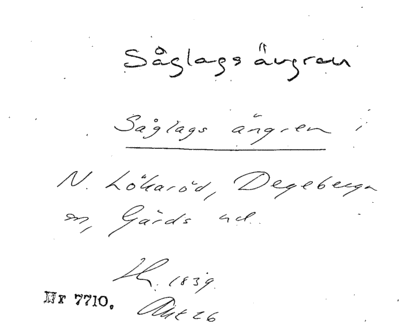 Såglagsängren
Såglags ängren i
N. Lökaröd, Degeberga
sn, Gärds hd.
1839.
Nr 7710.
Akt 26